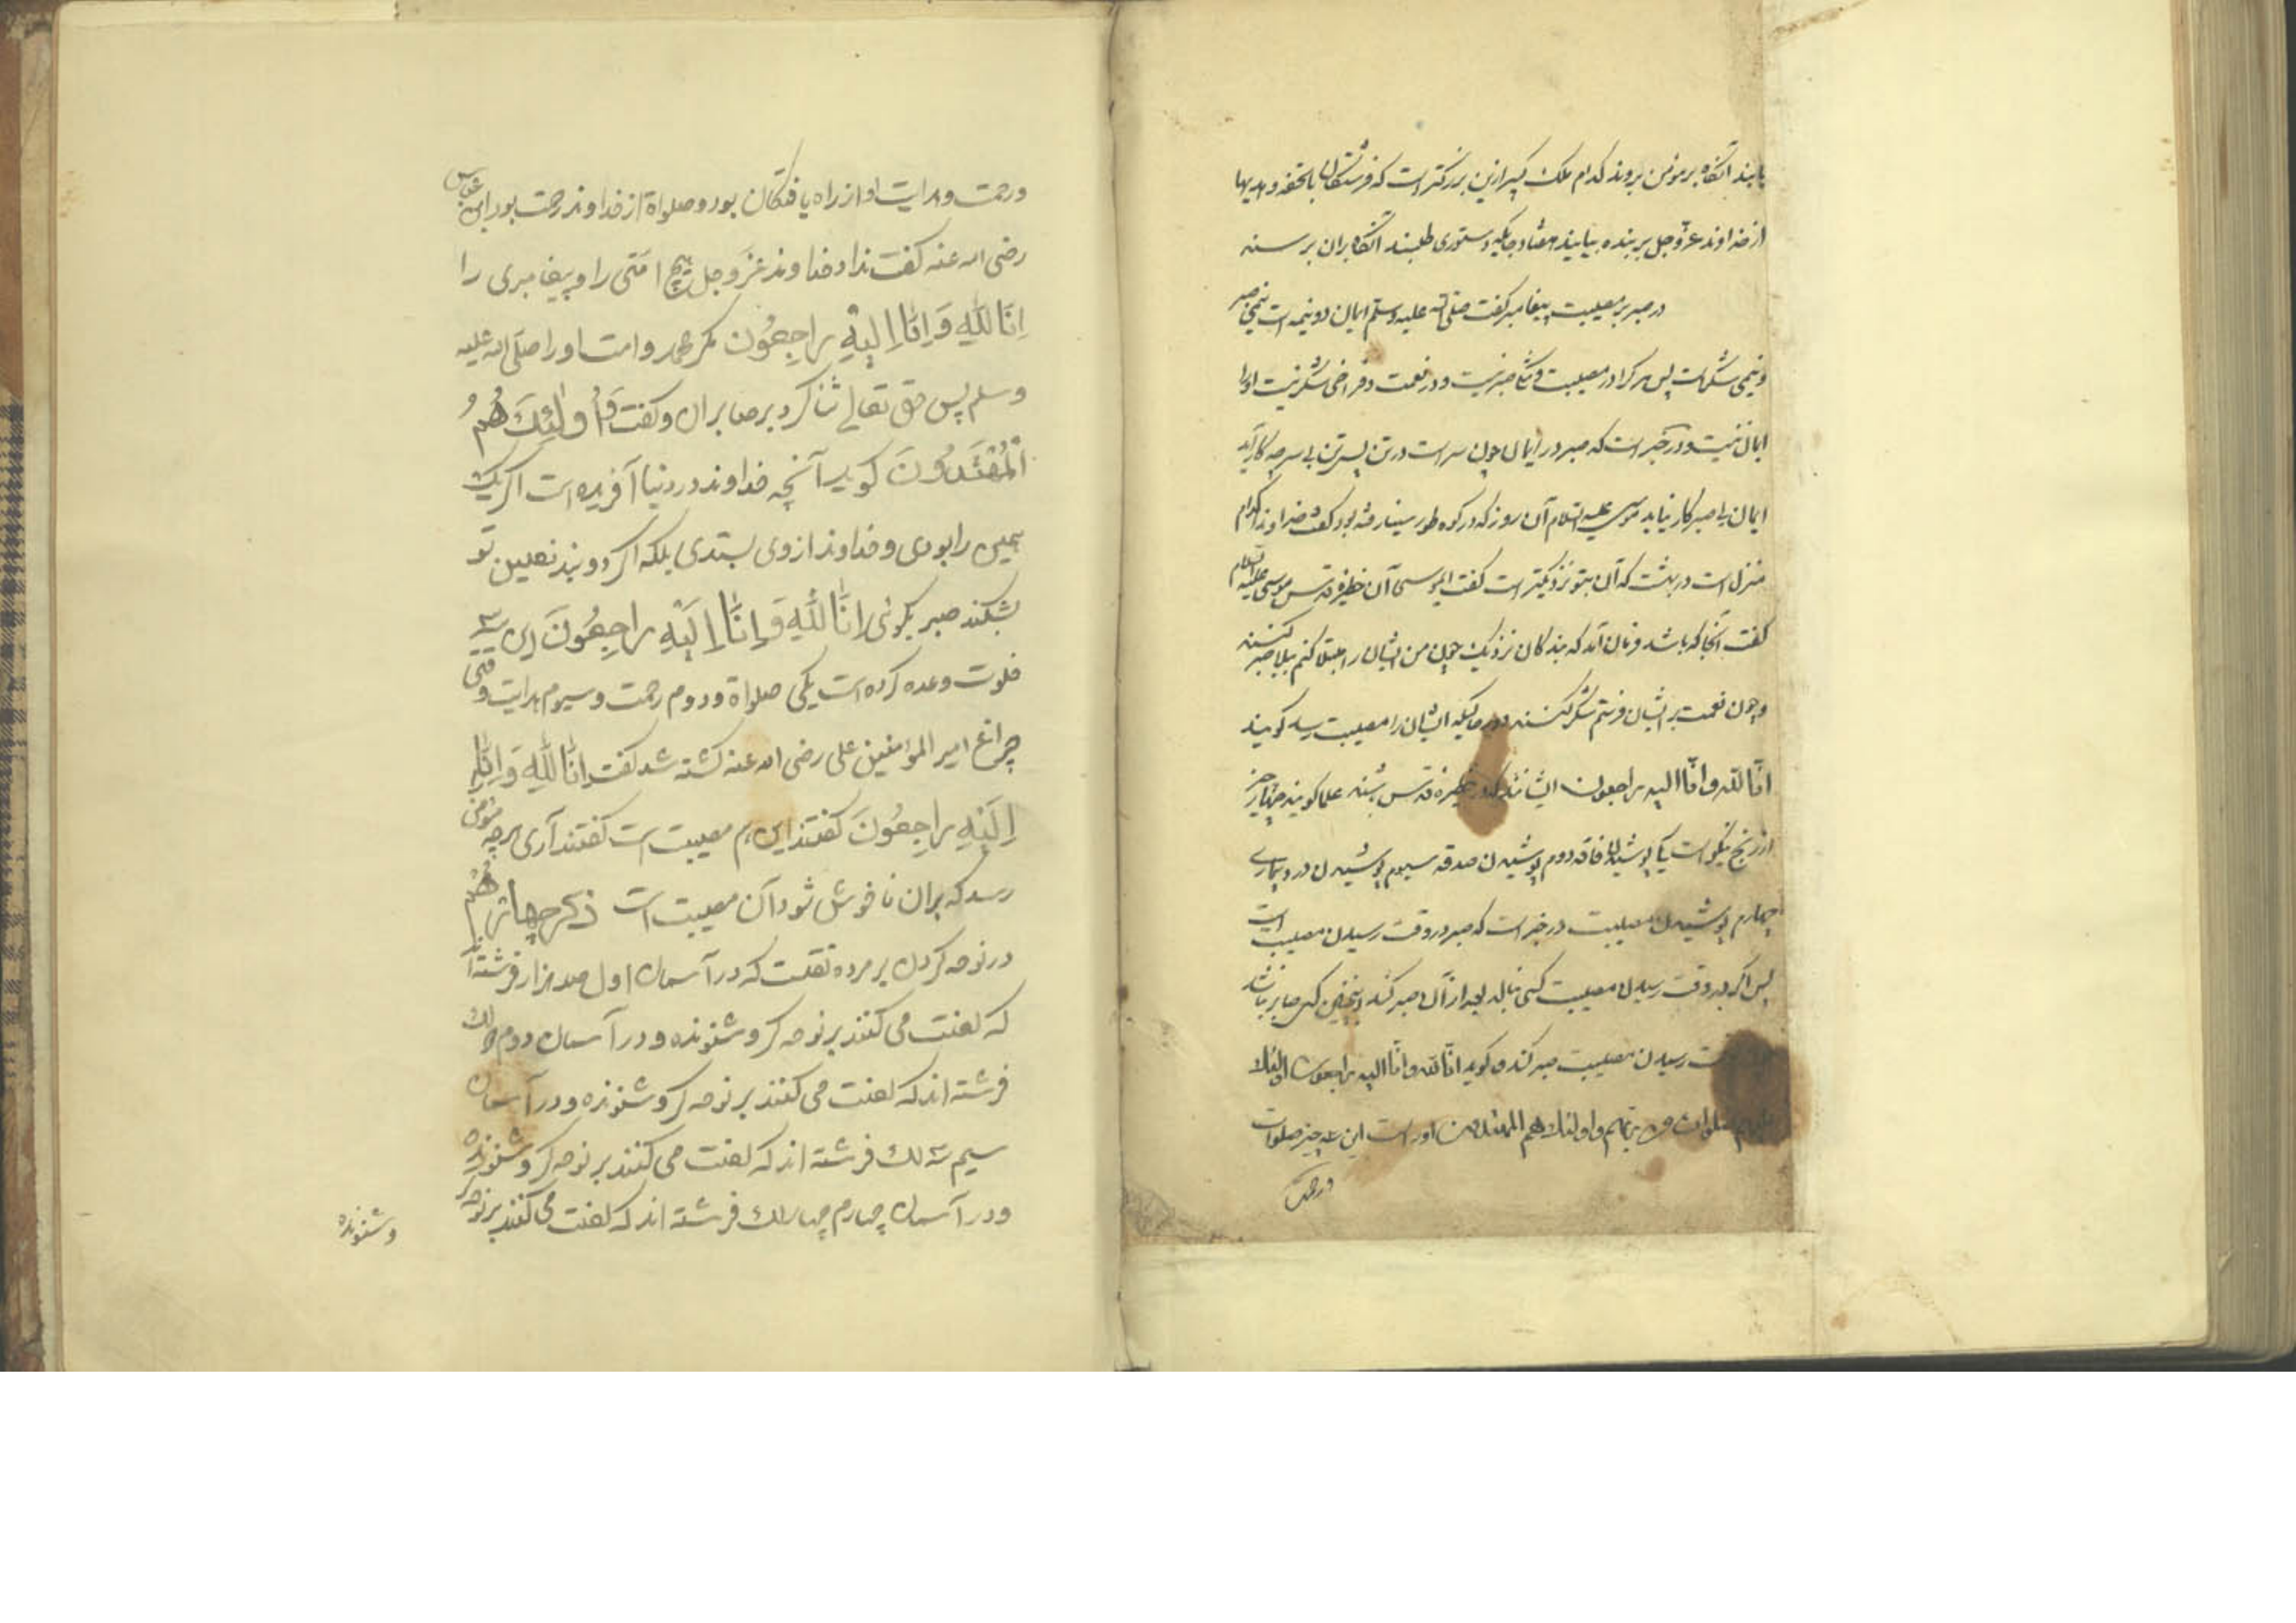 یابند آنگاه بر مؤمن بروند کدام ملک کبیر ازین بزرکتر است که فرشتکان با تحفه و هدیها
از خداوند عز و جل بر بنده بیایند هفتاد جایکه دستوری طلبند آنگاه بران برسند
در صبر بر مصیبت پیغامبر کفت صلی الله علیه وسلم ایمان دو نیمه است نیمی صبر
و نیمی شکر است پس هر کرا در مصیبت و صبر نیست و در نعمت و فراخی شکر نیست او را
ایمان نیست و در خبر است که صبر در ایمان چون سر است در تن پس تن بی سر چه کار آید
ایمان بی صبر کار نیاید موسی علیه السلام آن روز که در کوه طور سینا رفته بود کفت خداوندا کدام
منزل است در بهشت که آن بتو نزدیکتر است کفت ای موسی آن حظیره قدس موسی علیه السلام
کفت آنجا که باشد فرمان آمد که بندکان نزدیک چون من ایشان را مبتلا کنم ببلا صبر کنند
و چون نعمت بر ایشان فرستم شکر کنند و هر جایکه ایشان را مصیبت رسد کویند
انا لله و انا الیه راجعون ایشانند که در حظیره قدس باشند علما کویند چهار چیز
از رنج نیکو است یکی پوشیدن فاقه دوم پوشیدن صدقه سیوم پوشیدن درد و بیماری
چهارم پوشیدن مصیبت در خبر است که صبر در وقت رسیدن مصیبت است
پس اکر در وقت رسیدن مصیبت کسی بنالد بعد از آن صبر کند اینچنین کس صابر نباشد
رسیدن مصیبت صبر کند و کوید انا لله و انا الیه راجعون اولئک
صلوات من ربهم و اولئک هم المهتدون او راست این سه چیز صلوات
و رحمت
و رحمت و هدایت او از راه یافتکان بود و صلواة از خداوند رحمت بود ابن عباس
رضی الله عنه کفت نداد خداوند عز و جل هیچ امتی را و پیغامبری را
اِنَّا لِلّٰهِ وَ اِنَّا اِلَیْهِ رَاجِعُون مکر محمد و امت او را صلی الله علیه
وسلم پس حق تعالی ثنا کرد بر صابران و کفت وَ اُولٰئِکَ هُمُ
الْمُهْتَدُونَ کوید آنچه خداوند در دنیا آفریده است اکر یک
همین را بودی و خداوند از وی بستدی بلکه اکر دو بند نعلین تو
بشکند صبر بکوئی اِنَّا لِلّٰهِ وَ اِنَّا اِلَیْهِ رَاجِعُونَ این سه
خلوت وعده کرده است یکی صلواة و دوم رحمت و سیوم هدایت وقتی
چراغ امیر المؤمنین علی رضی الله عنه کشته شد کفت اِنَّا لِلّٰهِ وَ اِنَّا
اِلَیْهِ رَاجِعُونَ کفتند این هم مصیبت است کفتند آری هرچه مؤمن
رسد که بران ناخوش شود آن مصیبت است ذکر چهارم
در نوحه کردن بر مرده نقلست که در آسمان اول صد هزار فرشته اند
که لعنت می کنند بر نوحه کر و شنونده و در آسمان دوم لک
فرشته اند که لعنت می کنند بر نوحه کر و شنونده و در آسمان
سیم سه لک فرشته اند که لعنت می کنند بر نوحه کر و شنونده
و در آسمان چهارم چهار لک فرشته اند که لعنت می کنند بر نوحه کر
و شنونده